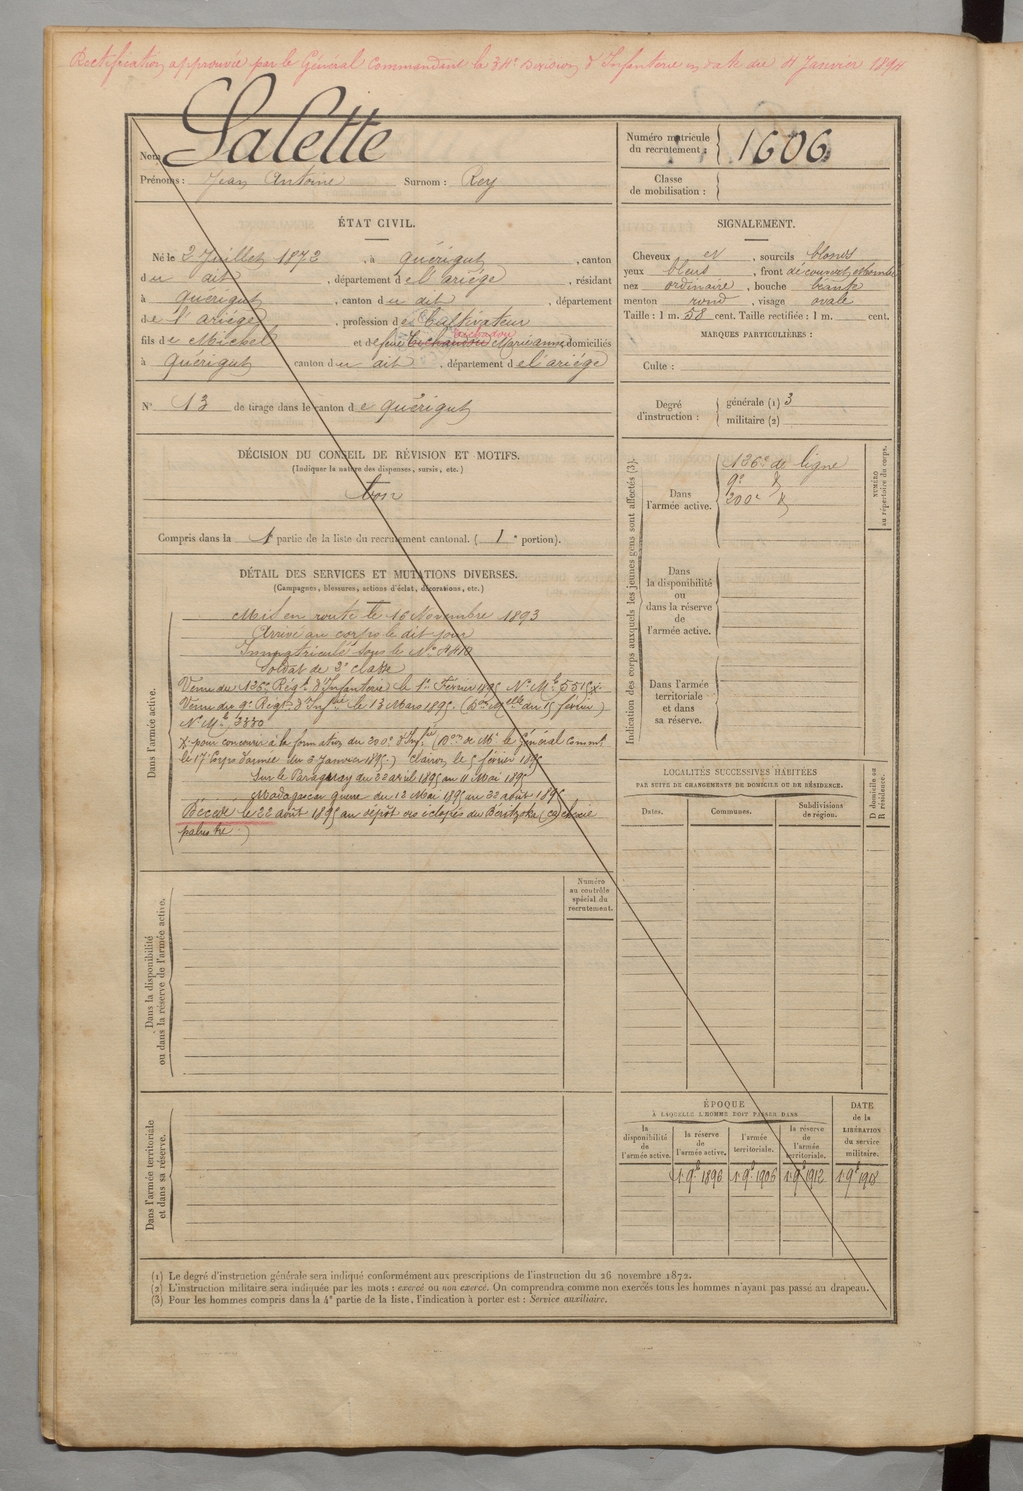 Rectification approuvée par le Général Commandant la 34e Division d'Infanterie en date du 4 Janvier 1894
Nom Salette
Prénoms : Jean Antoine Surnom : Rey
Numéro matricule
du recrutement : 1606
Classe
de mobilisation :
ÉTAT CIVIL.
Né le 2 Juillet 1872, à Quérigut, canton
du dit, département de l'ariége, résidant
à Quérigut, canton du dit, département
de l'ariége, profession de Cultivateur
fils de Michel et de feue Marianne, domiciliés
à Quérigut canton du dit, département de l'ariége
N° 13 de tirage dans le canton de Quérigut
SIGNALEMENT.
Cheveux et, sourcils blonds
yeux bleus, front découvert
nez ordinaire, bouche
menton rond, visage ovale
Taille : 1 m. 58 cent. Taille rectifiée : 1 m. cent.
MARQUES PARTICULIÈRES :
Culte :
Degré
d'instruction :
générale (1) 3
militaire (2)
DÉCISION DU CONSEIL DE RÉVISION ET MOTIFS.
(Indiquer la nature des dispenses, sursis, etc.)
bon
Compris dans la 1 partie de la liste du recrutement cantonal. ( 1 e portion).
DÉTAIL DES SERVICES ET MUTATIONS DIVERSES.
(Campagnes, blessures, actions d'éclat, décorations, etc.)
Dans l'armée active.
Mis en route le 16 Novembre 1893
Arrivé au corps le dit jour
Immatriculé sous le No
Soldat de 2e classe
Venu du 136e Régt d'Infanterie le 1er Février 1895 No Mle
Venu du 9e Régt d'Infrie le 13 Mars 1895. (Don Mlle du 15 février)
No Mle 3330
X pour concourir à la formation du 200e d'Infie (Don de Mr le Général Commt
le 17e Corps d'armée du 3 Janvier 1895.) Clairon le 5 février 1895
Sur le Paraguay du 22 avril 1895 au 11 Mai 1895
Madagascar guerre du 12 Mai 1895 au 22 août 1895
Décédé le 22 août 1895 au dépôt des éclopés du Béritzoka (cachexie
palustre.)
Indication des corps auxquels les jeunes gens sont affectés (3).
Dans
l'armée active.
136e de ligne
9e d
200e d
NUMÉRO
au répertoire du corps.
Dans
la disponibilité
ou
dans la réserve
de
l'armée active.
Dans l'armée
territoriale
et dans
sa réserve.
LOCALITÉS SUCCESSIVES HABITÉES
PAR SUITE DE CHANGEMENTS DE DOMICILE OU DE RÉSIDENCE.
Dates.
Communes.
Subdivisions
de région.
D domicile ou
R résidence.
Dans la disponibilité
ou dans la réserve de l'armée active.
Numéro
au contrôle
spécial du
recrutement.
Dans l'armée territoriale
et dans sa réserve.
ÉPOQUE
À LAQUELLE L'HOMME DOIT PASSER DANS
la
disponibilité
de
l'armée active.
la réserve
de
l'armée active.
l'armée
territoriale.
la réserve
de
l'armée
territoriale.
DATE
de la
LIBÉRATION
du service
militaire.
1er 9bre 1896 1er 9bre 1906 1er 9bre 1912 1er 9bre 1918
(1) Le degré d'instruction générale sera indiqué conformément aux prescriptions de l'instruction du 26 novembre 1872.
(2) L'instruction militaire sera indiquée par les mots : exercé ou non exercé. On comprendra comme non exercés tous les hommes n'ayant pas passé au drapeau.
(3) Pour les hommes compris dans la 4e partie de la liste, l'indication à porter est : Service auxiliaire.